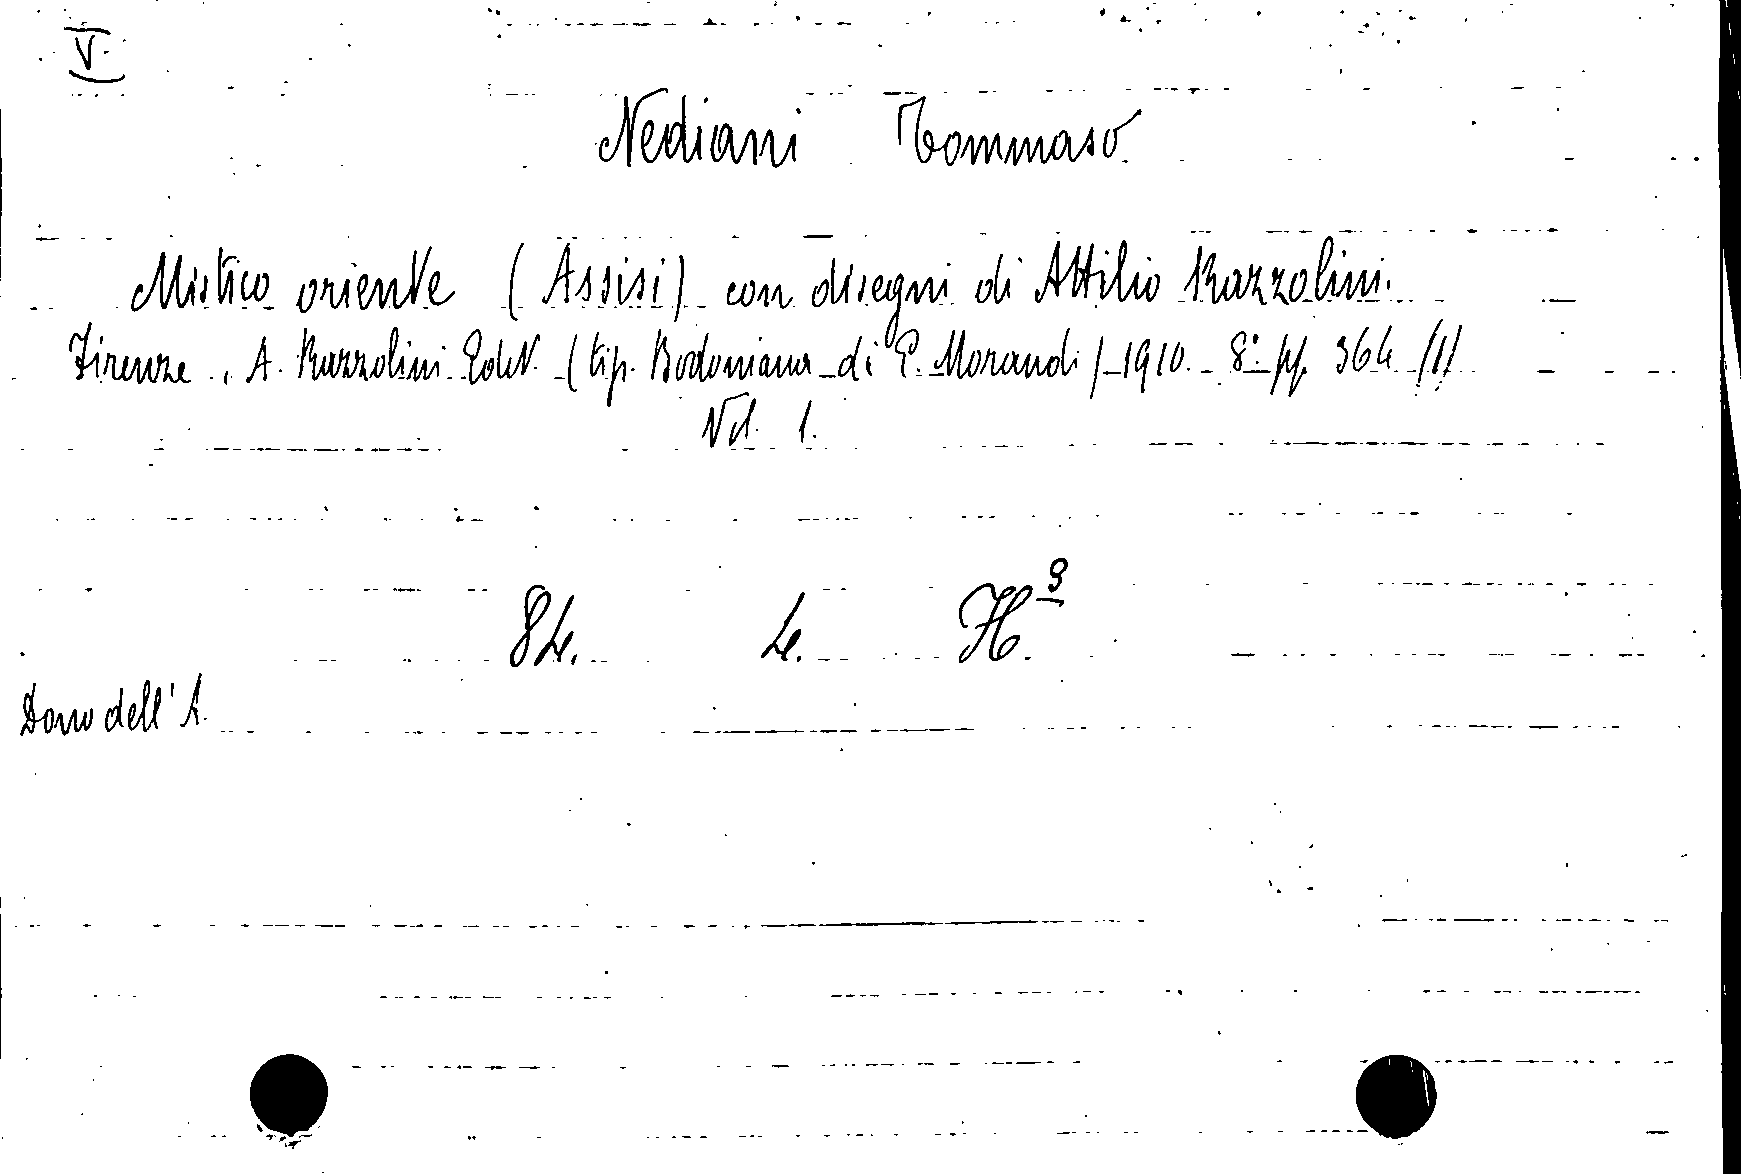 V.
Nediani Tommaso
Mistico oriente (Assisi) con disegni di Attilio Razzolini.
Firenze, A. Razzolini Edit. (tip. Bodoniana di E. Morandi) 1910. 8º pp. 364 (1)
Vol. 1.
84. 4. H. 9
Dono dell'A.